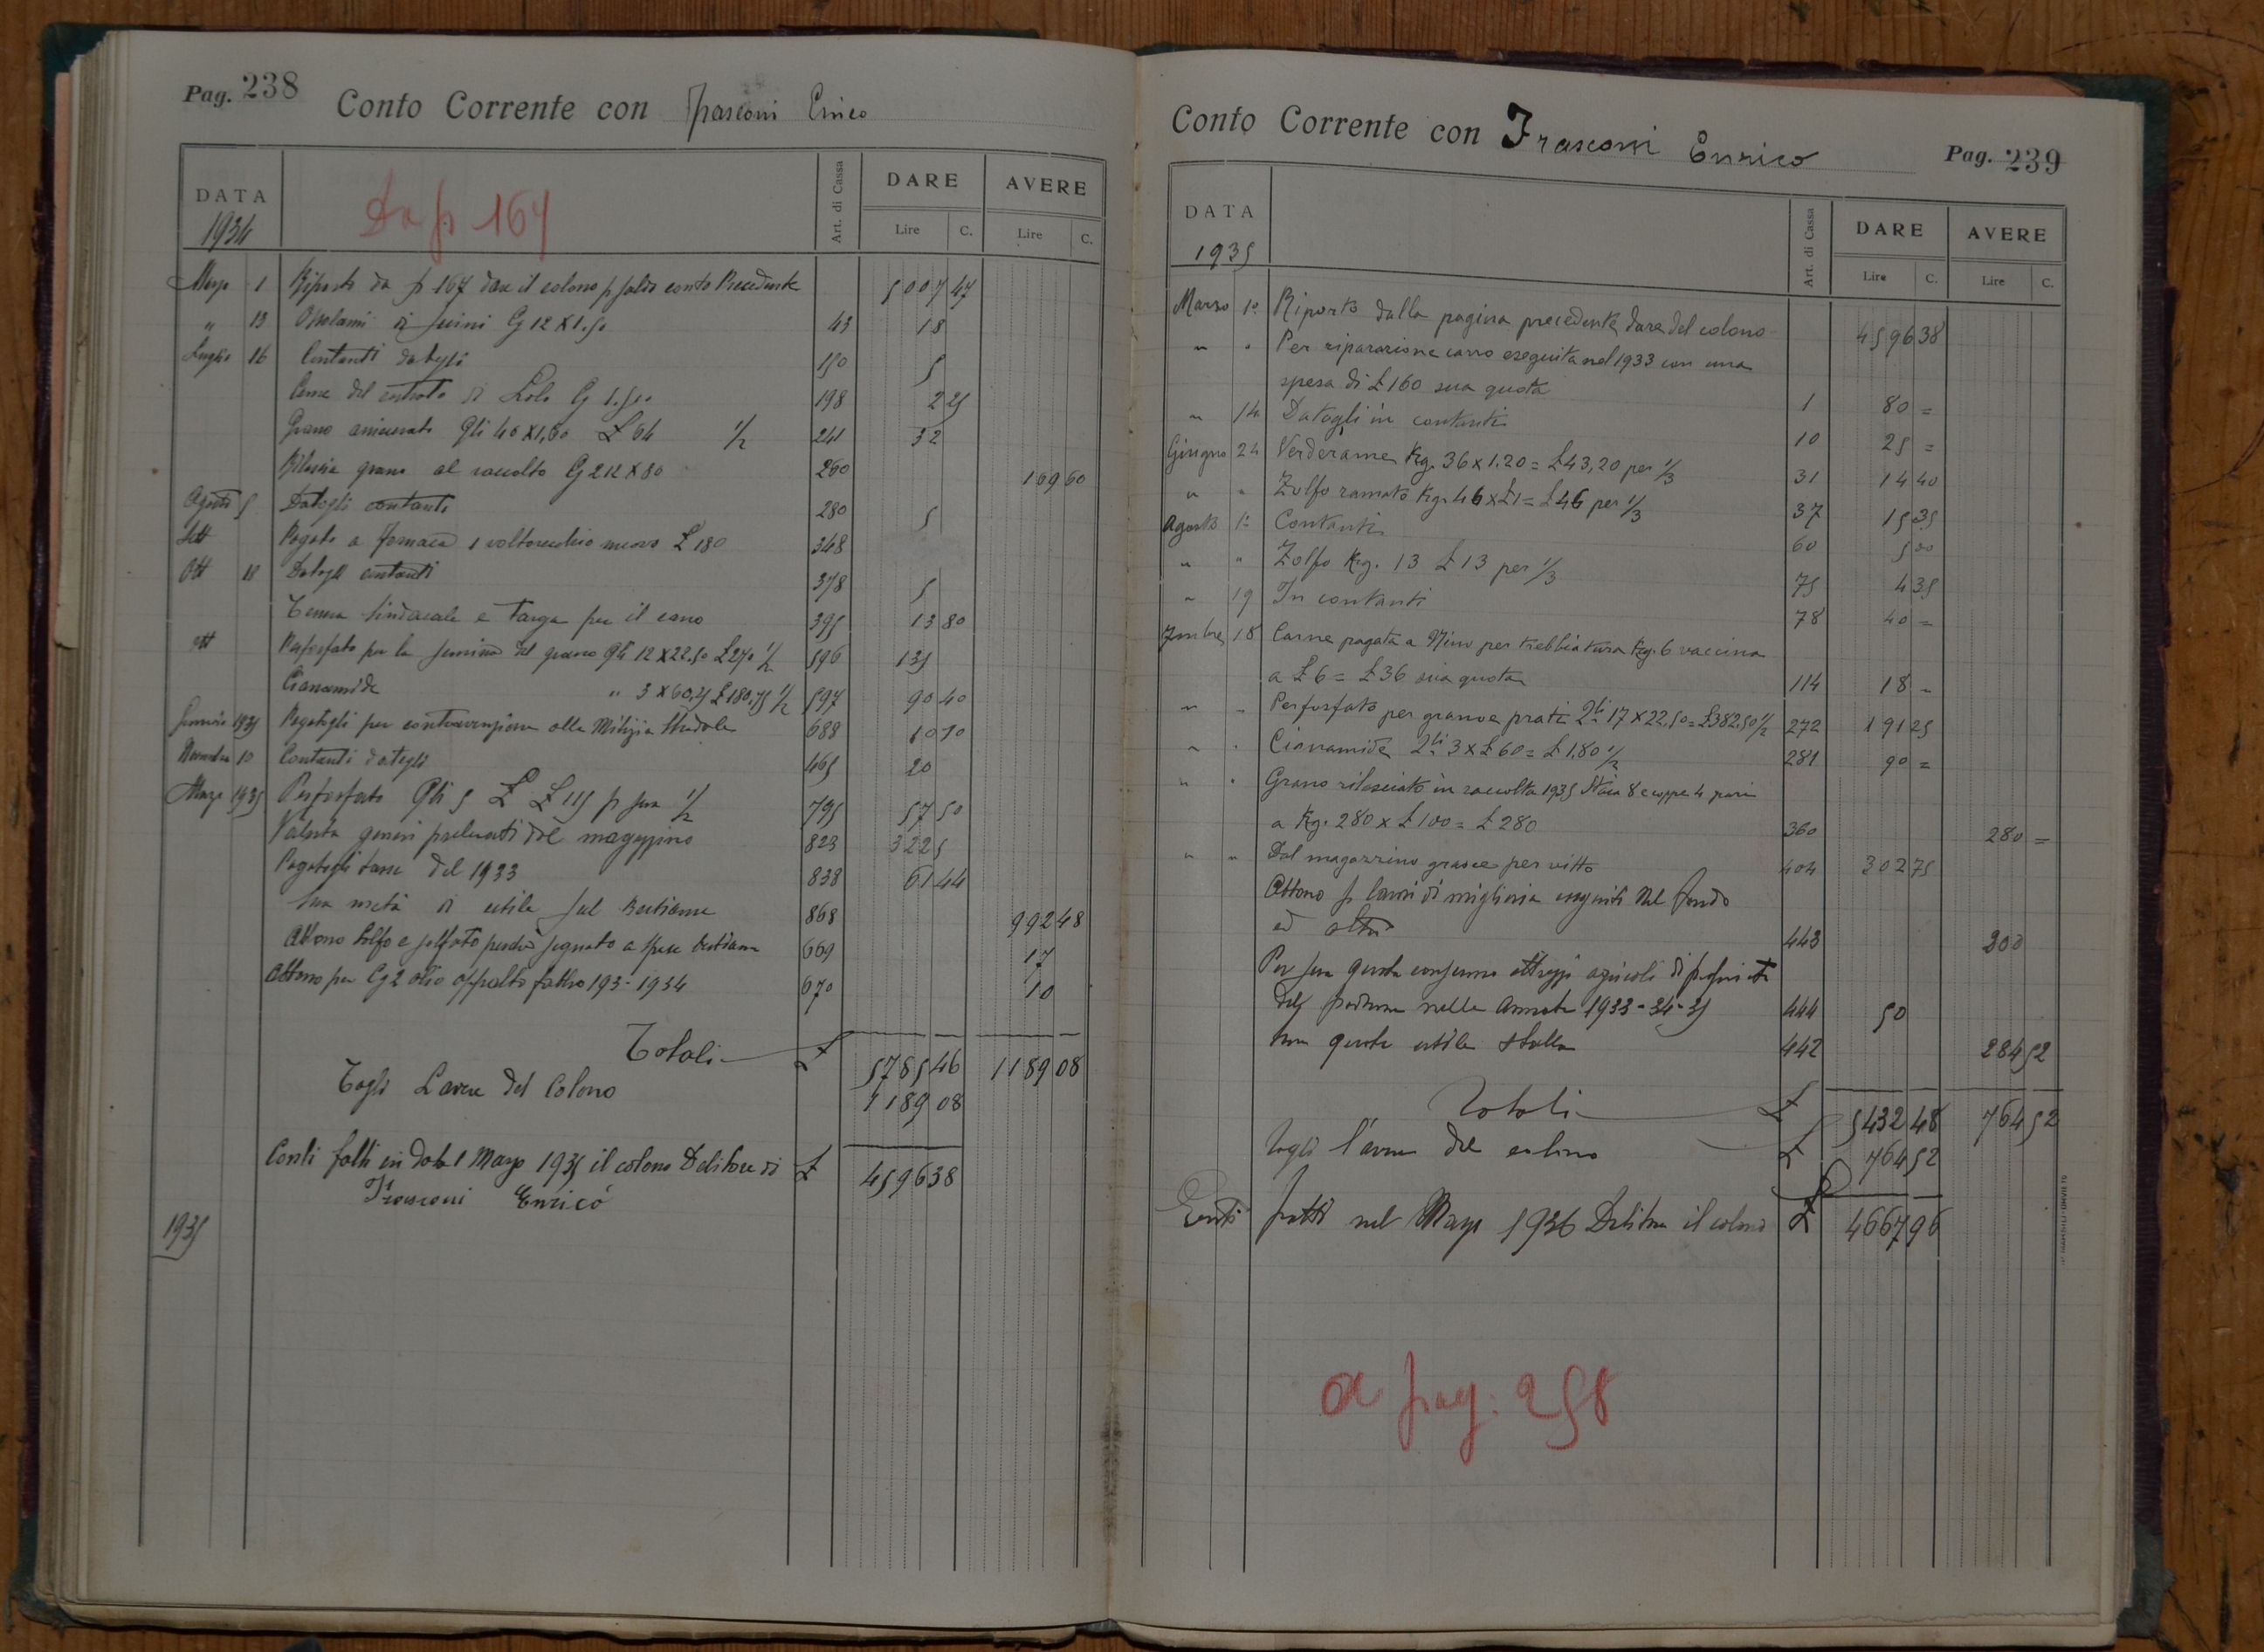 Pag. 238
Conto Corrente con Frasconi Enrico
DATA
1934
Da p 167
Art. di Cassa
DARE
AVERE
Lire C. Lire C.
Marzo 1 Riporto da p 167 dare il colono p saldo conto Precedente 5007 47
" 13 di suini Cg 12 X 1.50 43 18
Luglio 16 Contanti datogli 150 5
del estratto di Lolo Cg 1.500 198 2 25
Grano Qli 40 X 1,60 £ 64 1/2 241 32
grano al raccolto Cg 212 X 80 260 169 60
Agosto 5 Datogli contanti 280 5
Sett Pagato a Fornace 1 voltorecchio nuovo £ 180 348
Ott 18 Datogli contanti 378 5
Tessera Sindacale e Targa per il carro 395 13 80
Ott Perfosfato per la semina del grano Qli 12 X 22.50 £ 270 1/2 596 135
Cianamide " 3 X 60,25 £ 180.75 1/2 597 90 40
Gennaio 1935 Pagatogli per contravenzione alla Milizia Stradale 688 10 10
Novembre 10 Contanti datogli 465 20
Marzo 1935 Perfosfato Qli 5 £ £ 115 p sua 1/2 795 57 50
Valuta generi prelevati dal magazzino 823 322 5
Pagatogli tasse del 1933 838 61 44
Sua metà di utile sul Bestiame 868 992 48
Abbono Solfo e solfato perchè segnato a spese bestiame 669 17
Abbono per Cg 2 olio 193- 1934 670 10
Totali £ 5785 46 1189 08
Togli L'avere del Colono 1189 08
Conti fatti in data 1 Marzo 1935 il colono Debitore di £ 4596 38
Frasconi Enrico
1935
Conto Corrente con Frasconi Enrico
Pag. 239
DATA
1935
Art. di Cassa
DARE
AVERE
Lire C. Lire C.
Marzo 1º Riporto dalla pagina precedente dare del colono 4596 38
" " Per riparazione carro eseguita nel 1933 con una
spesa di £ 160 sua quota 1 80 =
" 14 Datogli in contanti 10 25 =
Giugno 24 Verderame Kg. 36 x 1.20 = £ 43,20 per 1/3 31 14 40
" " Zolfo ramato Kg. 46 x £ 1 = £ 46 per 1/3 37 15 35
Agosto 1º Contanti 60 5 00
" " Zolfo Kg. 13 £ 13 per 1/3 75 4 35
" 19 In contanti 78 40 =
7mbre 18 Carne pagata a Nino per trebbiatura Kg. 6 vaccina
a £ 6 = £ 36 sua quota 114 18 =
" " Perfosfato per grano e prati Qli 17 x 22.50 = £ 382.50 1/2 272 191 25
" " Cianamide Qli 3 x £ 60 = £ 180 1/2 281 90 =
" " Grano rilasciato in raccolta 1935 Staia 8 e coppe 4 pari
a Kg. 280 x £ 100 = £ 280 360 280 =
" " Dal magazzino grasce per vitto 404 302 75
Abbono p lavori di miglioria eseguiti nel fondo
ed altri 443 200
Per sua quota consumo attrezzi agricoli di proprietà
del padrone nelle Annate 1933-34-35 444 50
Sua quota utile stalla 442 284 52
Totali £ 5432 48 764 52
Togli l'avere del colono £ 764 52
Conti fatti nel Marzo 1936 Debitore il colono £ 4667 96
a pag. 258